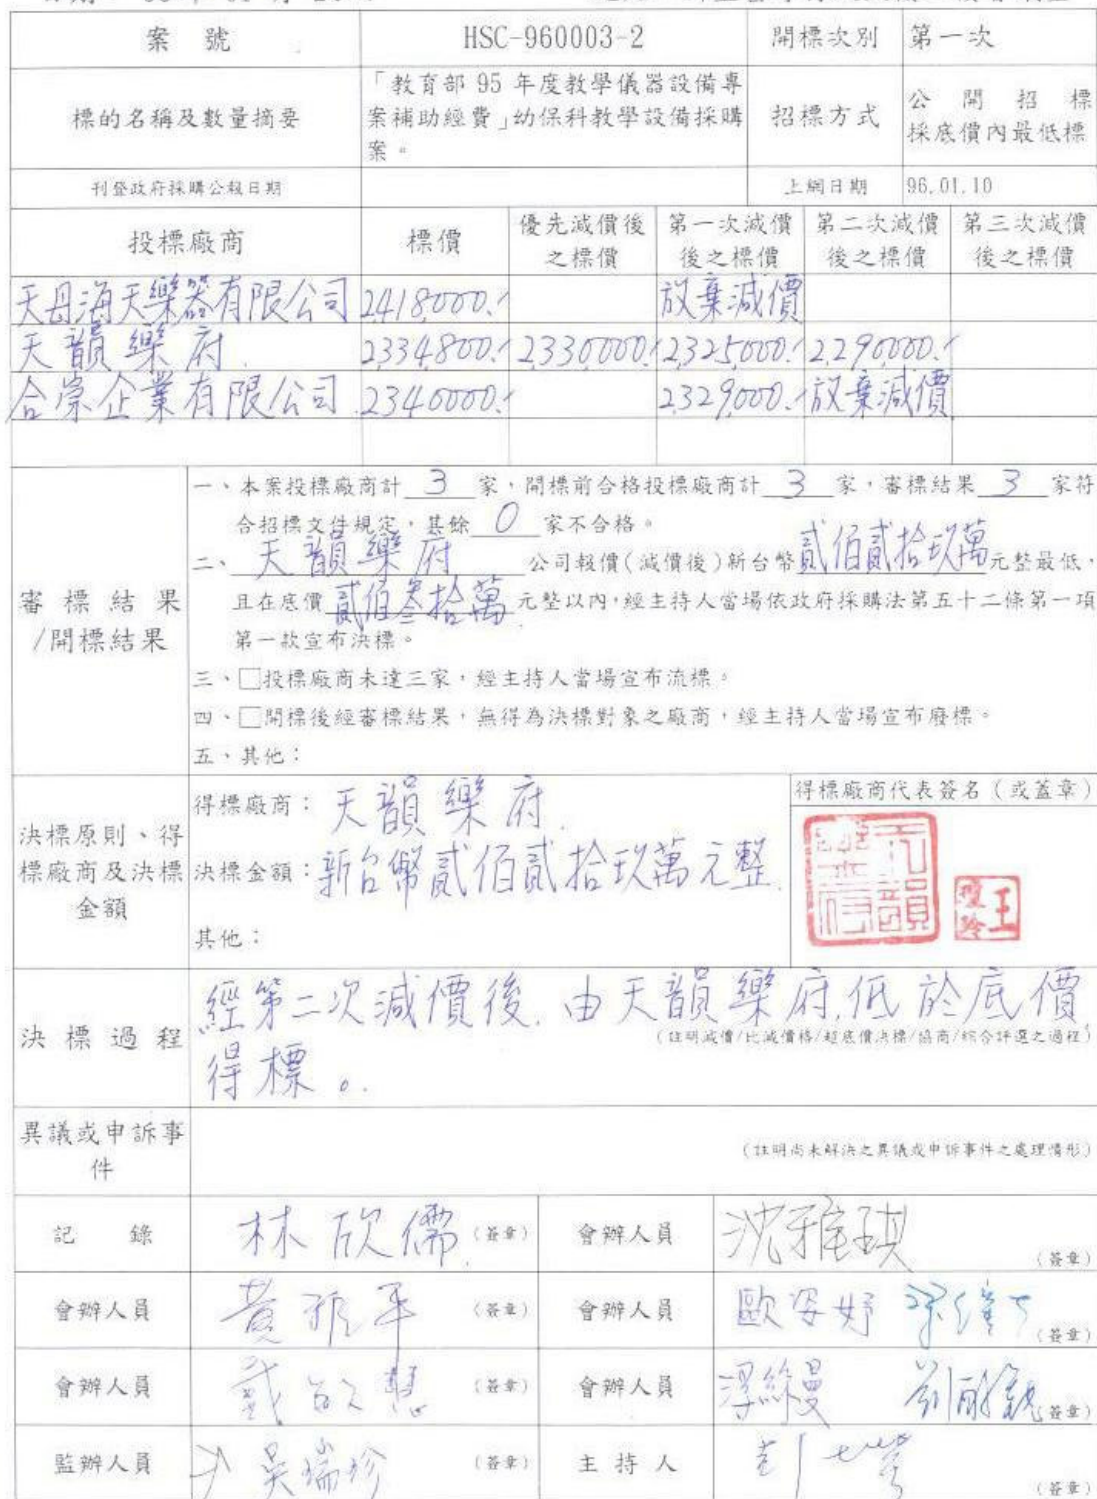 案 號 HSC-960003-2 開標次別 第一次
標的名稱及數量摘要 「教育部 95 年度教學儀器設備專案補助經費」幼保科教學設備採購案。 招標方式 公開招標 採底價內最低標
刊登政府採購公報日期 上網日期 96.01.10
投標廠商 標價 優先減價後之標價 第一次減價後之標價 第二次減價後之標價 第三次減價後之標價
海天樂器有限公司 2418000.- 放棄減價
天韻樂府. 2334800.- 2330000.- 2325000.- 2290000.-
合崇企業有限公司 2340000.- 2329000.- 放棄減價
審標結果/開標結果
一、本案投標廠商計 3 家,開標前合格投標廠商計 3 家,審標結果 3 家符
合招標文件規定,其餘 0 家不合格。
二、天韻樂府 公司報價(減價後)新台幣貳佰貳拾玖萬元整最低,
且在底價 貳佰叁拾萬 元整以內,經主持人當場依政府採購法第五十二條第一項
第一款宣布決標。
三、□投標廠商未達三家,經主持人當場宣布流標。
四、□開標後經審標結果,無得為決標對象之廠商,經主持人當場宣布廢標。
五、其他:
決標原則、得標廠商及決標金額
得標廠商: 天韻樂府.
得標廠商代表簽名(或蓋章)
決標金額:新台幣貳佰貳拾玖萬元整.
天韻樂府
王
其他:
決標過程 經第二次減價後. 由天韻樂府.低於底價
(註明減價/比減價格/超底價決標/協商/綜合評選之過程)
得標。.
異議或申訴事件
(註明尚未解決之異議或申訴事件之處理情形)
記 錄 林欣儒 (簽章) 會辦人員 沈雅琪 (簽章)
會辦人員 黃 平 (簽章) 會辦人員 歐姿妤 (簽章)
會辦人員 戴 慧 (簽章) 會辦人員 (簽章)
監辦人員 吳瑞珍 (簽章) 主持人 (簽章)